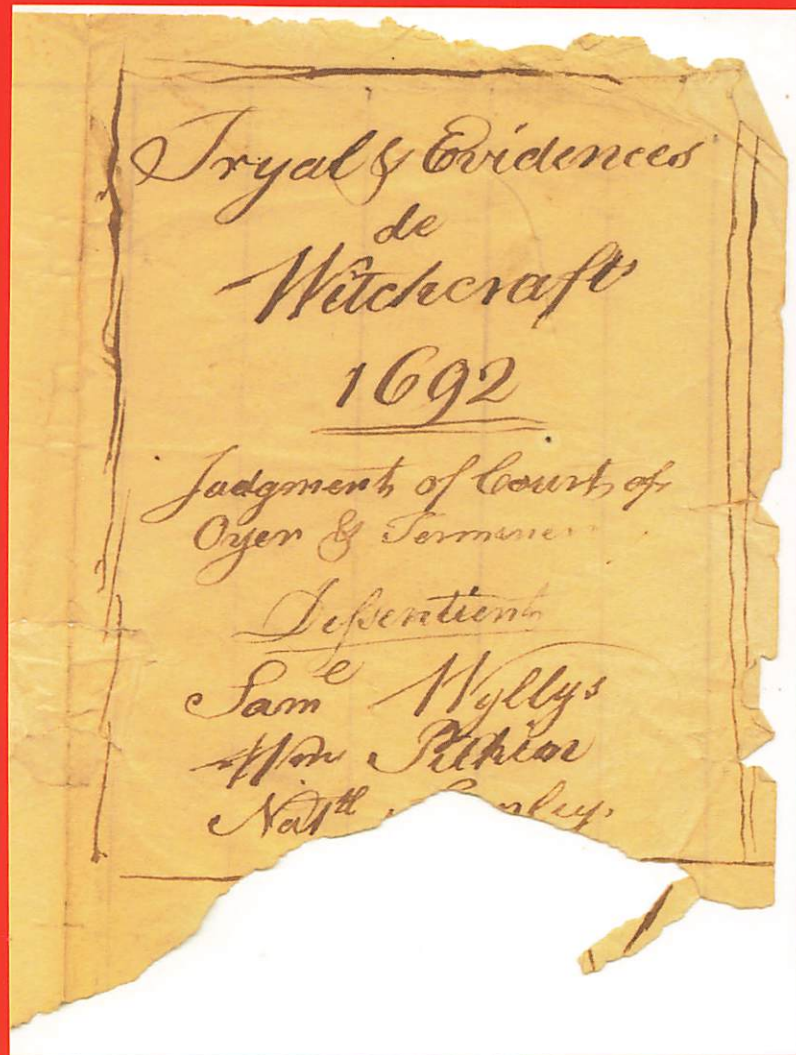 Tryal & Evidences
de
Witchcraft
1692
Judgment of Court of
Oyer &
Dissentient
Saml Wyllys
Wm Pitkin
Natll